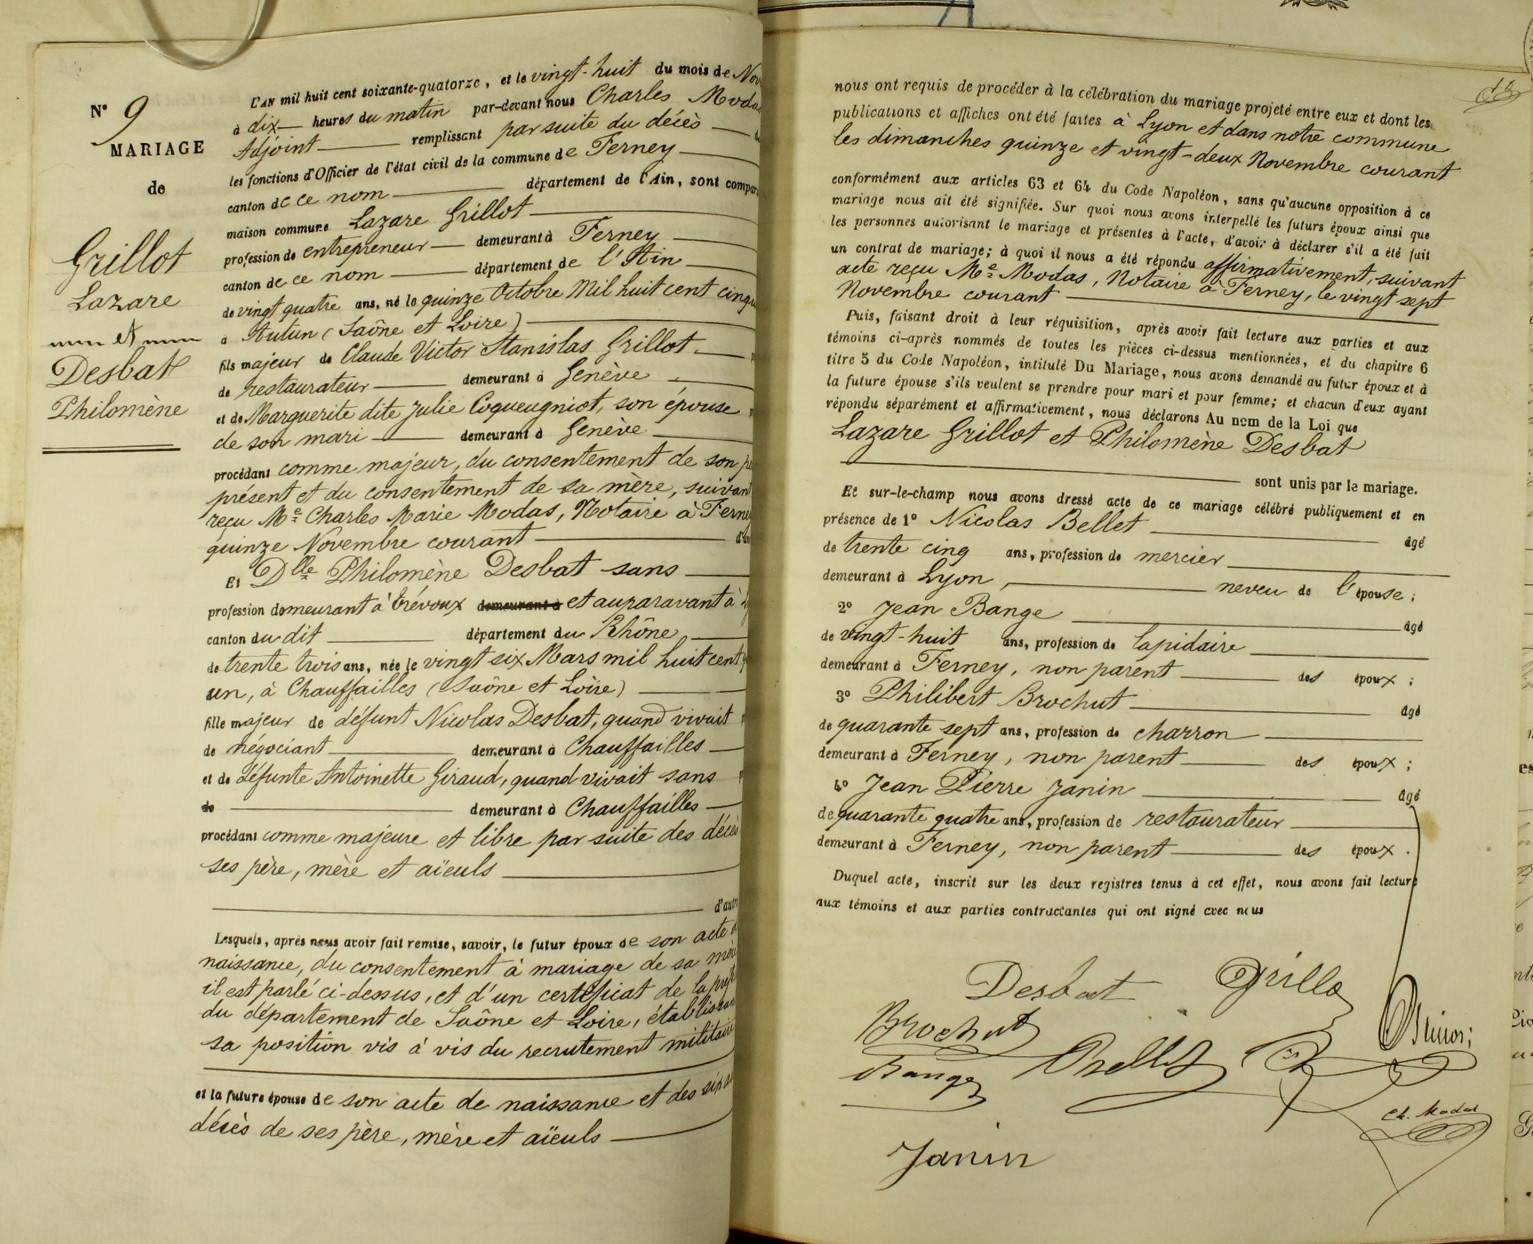 N° 9
MARIAGE
de
Grillot
Lazare
et
Desbat
Philomène
L'AN mil huit cent soixante-quatorze, et le vingt-huit du mois de Nov
à dix heures du matin par-devant nous Charles Modas
Adjoint remplissant par suite du décès
les fonctions d'Officier de l'état civil de la commune de Ferney
canton de ce nom département de l'Ain, sont compar
maison commune Lazare Grillot
profession de entrepreneur demeurant à Ferney
canton de ce nom département de l'Ain
de vingt quatre ans, né le quinze Octobre Mil huit cent cinqu
à Autun (Saône et Loire)
fils majeur de Claude Victor Stanislas Grillot
de restaurateur demeurant à Genève
et de Marguerite dite Julie Coqueugniot, son épouse
de son mari demeurant à Genève
procédant comme majeur, du consentement de son pè
présent et du consentement de sa mère, suivant
reçu Me Charles Marie Modas, Notaire à Ferney
quinze Novembre courant
Et Dlle Philomène Desbat sans
profession demeurant à Trévoux demeurant à et auparavant à
canton du dit département du Rhône
de trente trois ans, née le vingt six Mars mil huit cent
un, à Chauffailles (Saône et Loire)
fille majeur de défunt Nicolas Desbat, quand vivait
de négociant demeurant à Chauffailles
et de défunte Antoinette Giraud, quand vivait sans
de demeurant à Chauffailles
procédant comme majeure et libre par suite des décès
ses père, mère et aïeuls
d'autre
Lesquels, après nous avoir fait remise, savoir, le futur époux de son acte d
naissance, du consentement à mariage de sa mère
il est parlé ci-dessus, et d'un certificat de la préf
du département de Saône et Loire, établissan
sa position vis à vis du recrutement militaire
et la future épouse de son acte de naissance et des six a
décès de ses père, mère et aïeuls
nous ont requis de procéder à la célébration du mariage projeté entre eux et dont les
publications et affiches ont été faites à Lyon et dans notre commune
les dimanches quinze et vingt-deux Novembre courant
conformément aux articles 63 et 64 du Code Napoléon, sans qu'aucune opposition à ce
mariage nous ait été signifiée. Sur quoi nous avons interpellé les futurs époux ainsi que
les personnes autorisant le mariage et présentes à l'acte, d'avoir à déclarer s'il a été fait
un contrat de mariage; à quoi il nous a été répondu affirmativement, suivant
acte reçu Me Modas, Notaire à Ferney, le vingt sept
Novembre courant
Puis, faisant droit à leur réquisition, après avoir fait lecture aux parties et aux
témoins ci-après nommés de toutes les pièces ci-dessus mentionnées, et du chapitre 6
titre 5 du Code Napoléon, intitulé Du Mariage, nous avons demandé au futur époux et à
la future épouse s'ils veulent se prendre pour mari et pour femme; et chacun d'eux ayant
répondu séparément et affirmativement, nous déclarons Au nom de la Loi que
Lazare Grillot et Philomène Desbat
sont unis par le mariage.
Et sur-le-champ nous avons dressé acte de ce mariage célébré publiquement et en
présence de 1° Nicolas Bellet âgé
de trente cinq ans, profession de mercier
demeurant à Lyon, neveu de l'épouse;
2° Jean Bange âgé
de vingt-huit ans, profession de lapidaire
demeurant à Ferney, non parent des époux;
3° Philibert Brochut âgé
de quarante sept ans, profession de charron
demeurant à Ferney, non parent des époux;
4° Jean Pierre Janin âgé
de quarante quatre ans, profession de restaurateur
demeurant à Ferney, non parent des époux.
Duquel acte, inscrit sur les deux registres tenus à cet effet, nous avons fait lecture
aux témoins et aux parties contractantes qui ont signé avec nous
Desbat Grillo
Brochut
Bange Bellet
Ch. Modas
Janin